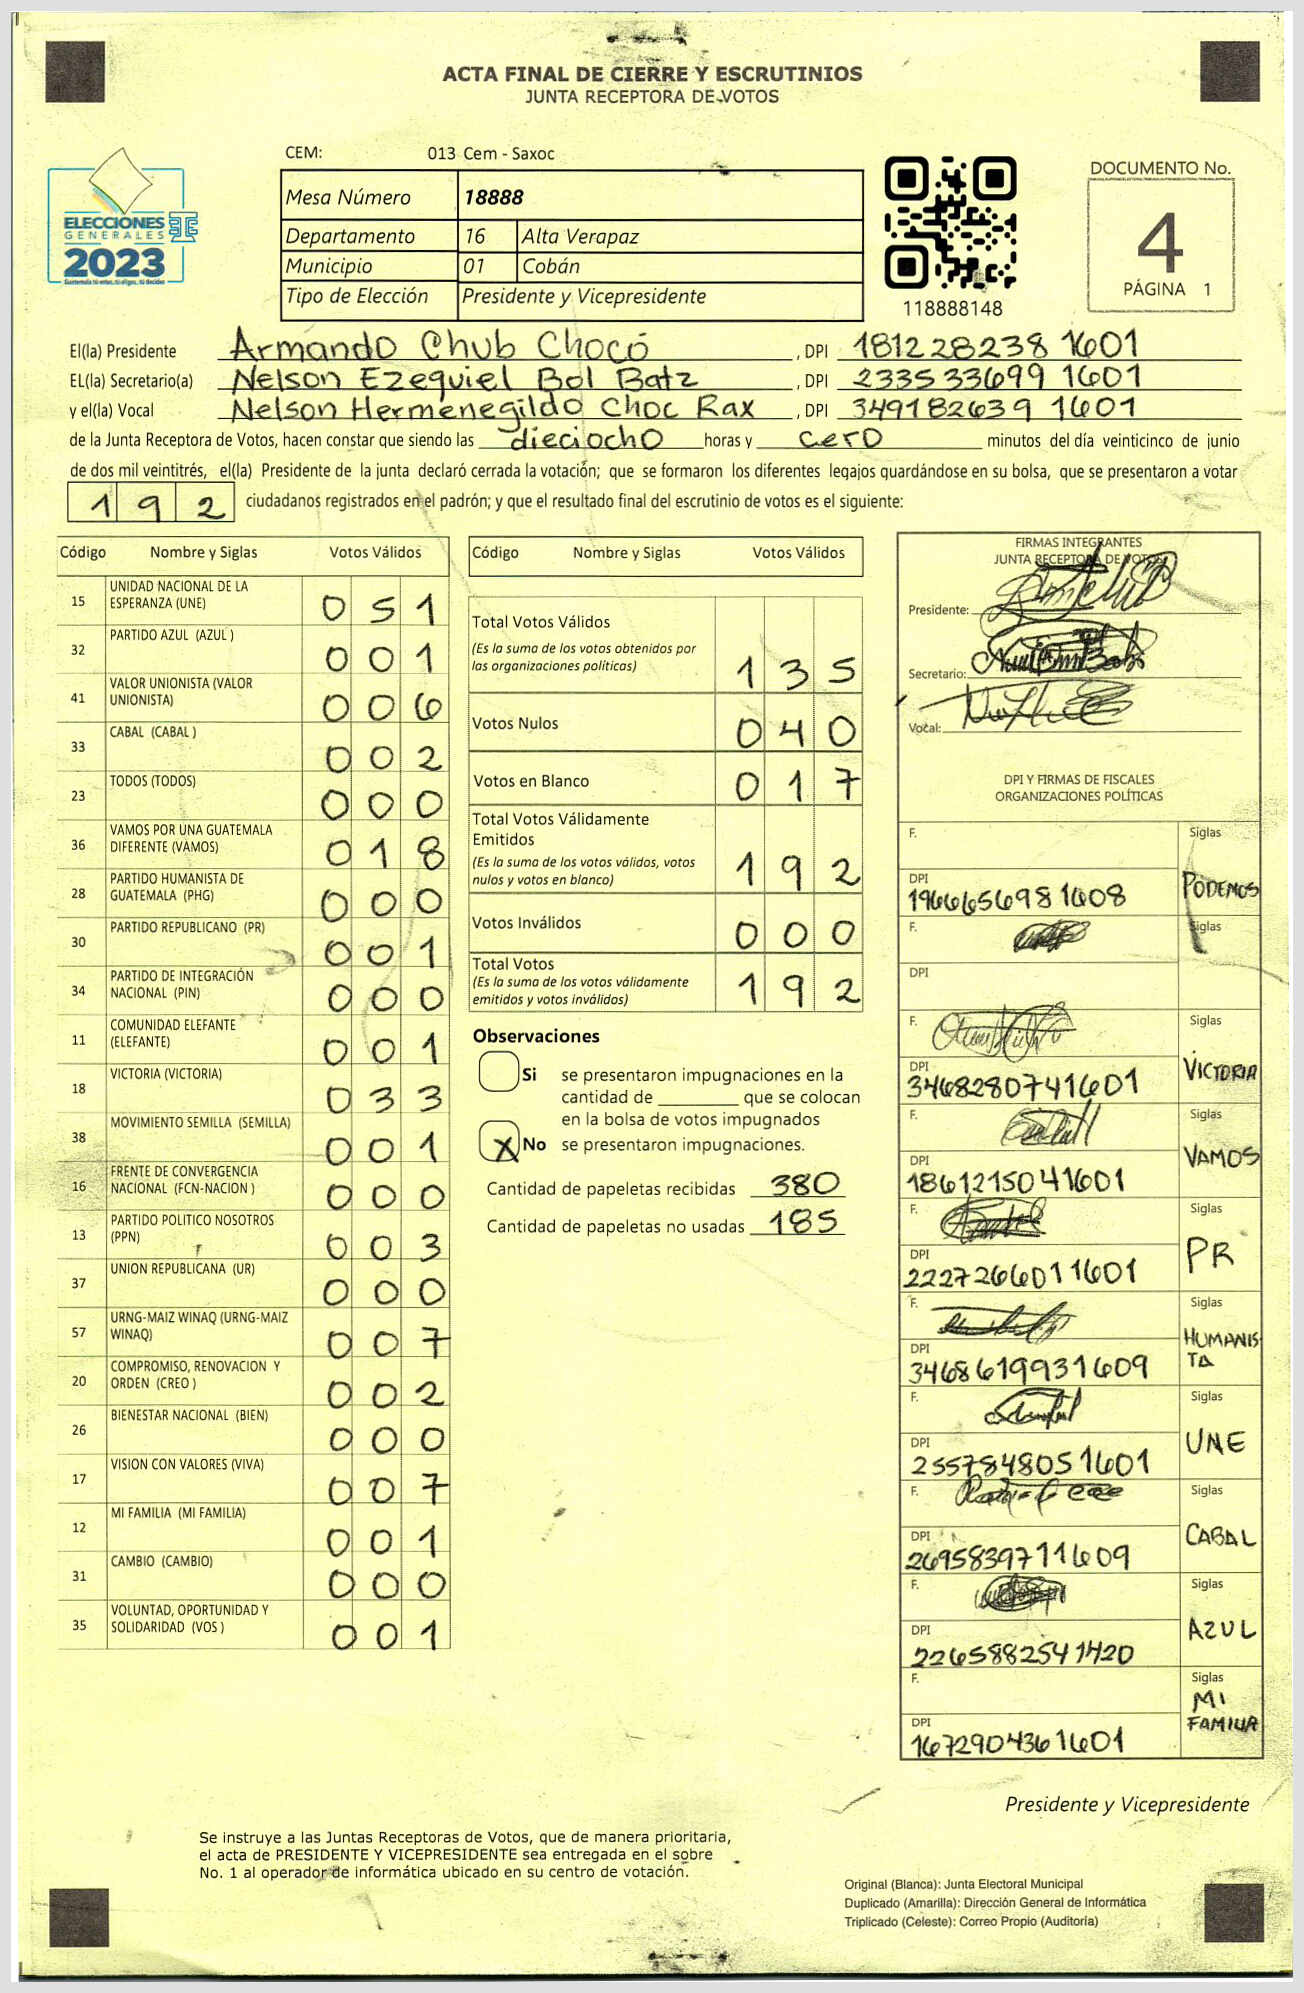 ACTA FINAL DE CIERRE Y ESCRUTINIOS
JUNTA RECEPTORA DE VOTOS
ELECCIONES
GENERALES
2023
CEM: 013 Cem - Saxoc
Mesa Número 18888
Departamento 16 Alta Verapaz
Municipio 01 Cobán
Tipo de Elección Presidente y Vicepresidente
118888148
DOCUMENTO No.
4
PÁGINA 1
El(la) Presidente Armando Chub Chocó , DPI 181228238 1601
EL(la) Secretario(a) Nelson Ezequiel Bol Batz , DPI 233533699 1601
y el(la) Vocal Nelson Hermenegildo Choc Rax , DPI 349182639 1601
de la Junta Receptora de Votos, hacen constar que siendo las dieciocho horas y cero minutos del día veinticinco de junio
de dos mil veintitrés, el(la) Presidente de la junta declaró cerrada la votación; que se formaron los diferentes legajos guardándose en su bolsa, que se presentaron a votar
192 ciudadanos registrados en el padrón; y que el resultado final del escrutinio de votos es el siguiente:
Código Nombre y Siglas Votos Válidos
15 UNIDAD NACIONAL DE LA ESPERANZA (UNE) 051
32 PARTIDO AZUL (AZUL ) 001
41 VALOR UNIONISTA (VALOR UNIONISTA) 006
33 CABAL (CABAL ) 002
23 TODOS (TODOS) 000
36 VAMOS POR UNA GUATEMALA DIFERENTE (VAMOS) 018
28 PARTIDO HUMANISTA DE GUATEMALA (PHG) 000
30 PARTIDO REPUBLICANO (PR) 001
34 PARTIDO DE INTEGRACIÓN NACIONAL (PIN) 000
11 COMUNIDAD ELEFANTE (ELEFANTE) 001
18 VICTORIA (VICTORIA) 033
38 MOVIMIENTO SEMILLA (SEMILLA) 001
16 FRENTE DE CONVERGENCIA NACIONAL (FCN-NACION ) 000
13 PARTIDO POLITICO NOSOTROS (PPN) 003
37 UNION REPUBLICANA (UR) 000
57 URNG-MAIZ WINAQ (URNG-MAIZ WINAQ) 007
20 COMPROMISO, RENOVACION Y ORDEN (CREO ) 002
26 BIENESTAR NACIONAL (BIEN) 000
17 VISION CON VALORES (VIVA) 007
12 MI FAMILIA (MI FAMILIA) 001
31 CAMBIO (CAMBIO) 000
35 VOLUNTAD, OPORTUNIDAD Y SOLIDARIDAD (VOS ) 001
Código Nombre y Siglas Votos Válidos
Total Votos Válidos
(Es la suma de los votos obtenidos por
las organizaciones políticas) 135
Votos Nulos 040
Votos en Blanco 017
Total Votos Válidamente
Emitidos
(Es la suma de los votos válidos, votos
nulos y votos en blanco) 192
Votos Inválidos 000
Total Votos
(Es la suma de los votos válidamente
emitidos y votos inválidos) 192
Observaciones
Si se presentaron impugnaciones en la
cantidad de ________ que se colocan
en la bolsa de votos impugnados
X No se presentaron impugnaciones.
Cantidad de papeletas recibidas 380
Cantidad de papeletas no usadas 185
FIRMAS INTEGRANTES
JUNTA RECEPTORA DE VOTOS
Presidente:
Secretario:
Vocal:
DPI Y FIRMAS DE FISCALES
ORGANIZACIONES POLÍTICAS
F. Siglas
DPI 1966656981608 PODEMOS
F. Siglas
DPI
F. Siglas
DPI 3468280741601 VICTORIA
F. Siglas
DPI 1861215041601 VAMOS
F. Siglas
DPI 2227266011601 PR
F. Siglas
DPI 3468619931609 HUMANISTA
F. Siglas
DPI 2557848051601 UNE
F. Siglas
DPI 2695839711609 CABAL
F. Siglas
DPI 2265882541420 AZUL
F. Siglas
DPI 1672904361601 MI FAMILIA
Presidente y Vicepresidente
Se instruye a las Juntas Receptoras de Votos, que de manera prioritaria,
el acta de PRESIDENTE Y VICEPRESIDENTE sea entregada en el sobre
No. 1 al operador de informática ubicado en su centro de votación.
Original (Blanca): Junta Electoral Municipal
Duplicado (Amarilla): Dirección General de Informática
Triplicado (Celeste): Correo Propio (Auditoría)